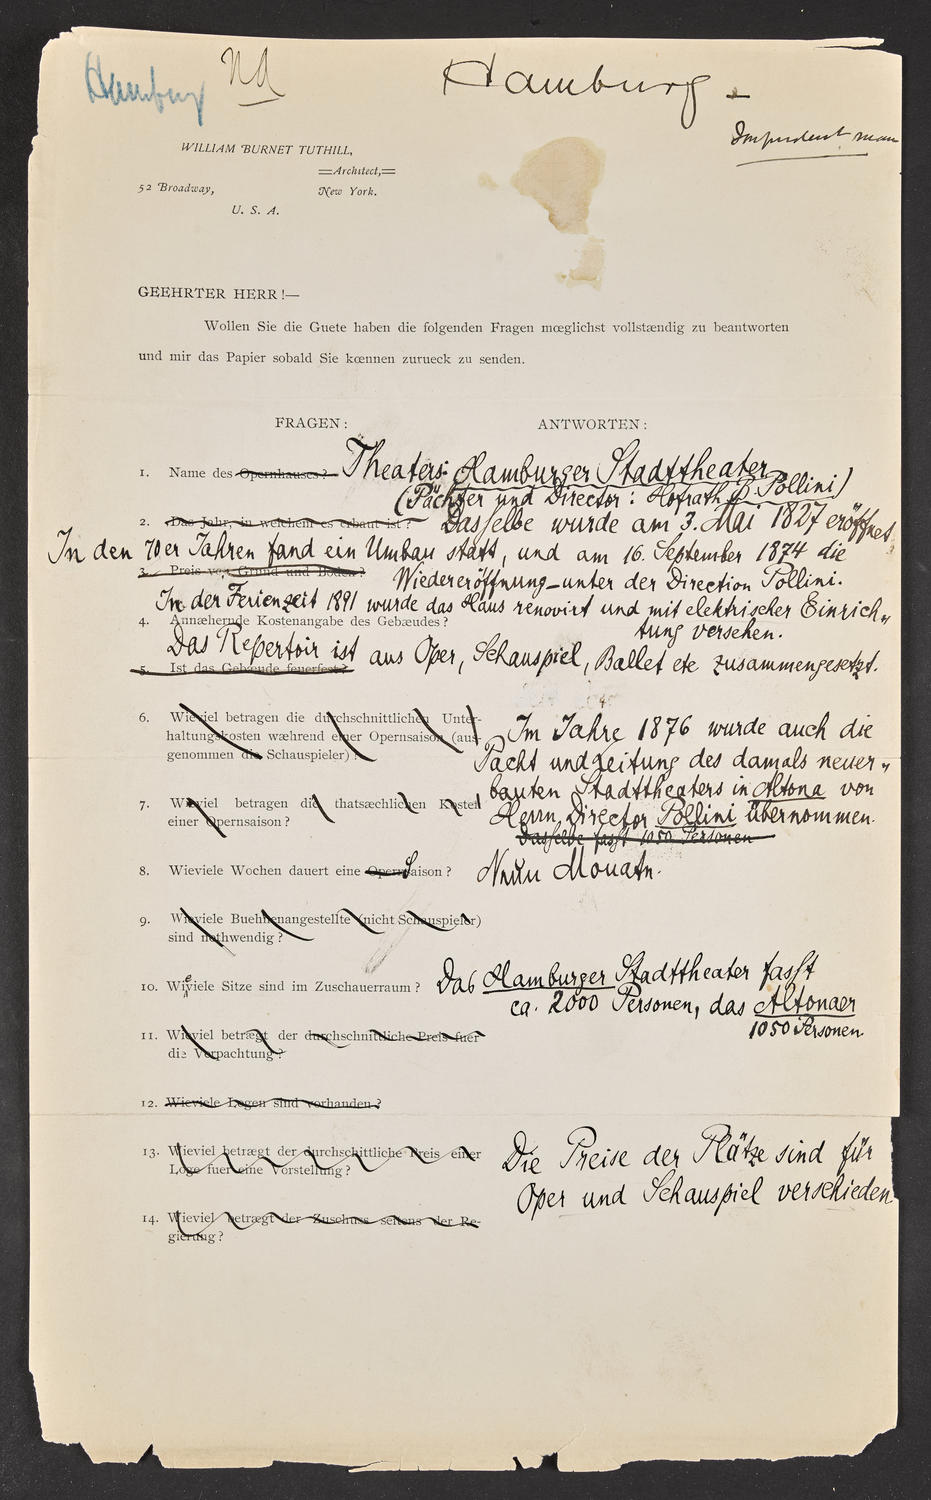 Hamburg
Nd
Hamburg.
Independent man
WILLIAM BURNET TUTHILL,
Architect,
52 Broadway, New York.
U. S. A.
GEEHRTER HERR!—
Wollen Sie die Guete haben die folgenden Fragen mœglichst vollstændig zu beantworten
und mir das Papier sobald Sie kœnnen zurueck zu senden.
FRAGEN: ANTWORTEN:
1. Name des Opernhauses? Theaters: Hamburger Stadttheater
(Pächter und Director: Hofrath B. Pollini)
2. Das Jahr, in welchem es erbaut ist? Dasselbe wurde am 3. Mai 1827 eröffnet.
In den 70er Jahren fand ein Umbau statt, und am 16. September 1874 die
3. Preis von Grund und Boden? Wiedereröffnung unter der Direction Pollini.
In der Ferienzeit 1891 wurde das Haus renovirt und mit elektrischer Einrich„
4. Annæhernde Kostenangabe des Gebæudes? tung versehen.
Das Repertoir ist aus Oper, Schauspiel, Ballet etc zusammengesetzt.
5. Ist das Gebæude feuerfest?
6. Wieviel betragen die durchschnittlichen Unter-
haltungskosten wæhrend einer Opernsaison (aus-
genommen die Schauspieler)?
Im Jahre 1876 wurde auch die
Pacht und Leitung des damals neuer„
bauten Stadttheaters in Altona von
Herrn Director Pollini übernommen.
Dasselbe fasst 1050 Personen
7. Wieviel betragen die thatsæchlichen Kosten
einer Opernsaison?
8. Wieviele Wochen dauert eine Opernsaison? Neun Monate.
9. Wieviele Buehnenangestellte (nicht Schauspieler)
sind nothwendig?
10. Wieviele Sitze sind im Zuschauerraum? Das Hamburger Stadttheater fasst
ca. 2000 Personen, das Altonaer
1050 Personen
11. Wieviel betrægt der durchschnittliche Preis fuer
die Verpachtung?
12. Wieviele Logen sind vorhanden?
13. Wieviel betrægt der durchschittliche Preis einer
Loge fuer eine Vorstellung?
Die Preise der Plätze sind für
Oper und Schauspiel verschieden
14. Wieviel betrægt der Zuschuss seitens der Re-
gierung?